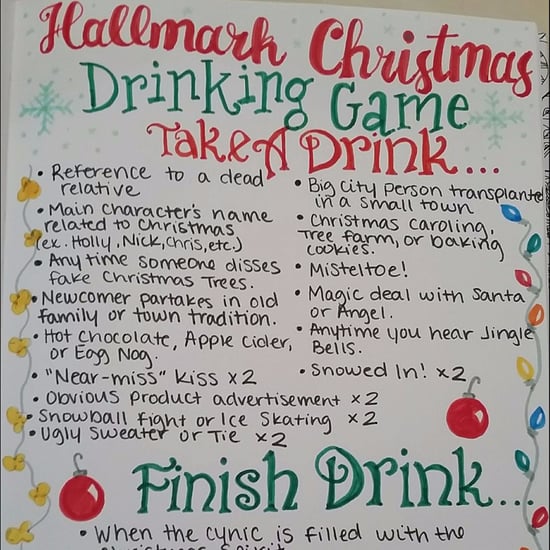 Hallmark Christmas
Drinking Game
Take A Drink...
• Reference to a dead
relative
• Main character's name
related to Christmas
(ex. Holly, Nick, Chris, etc.)
• Any time someone disses
fake Christmas Trees.
• Newcomer partakes in old
family or town tradition.
• Hot Chocolate, Apple Cider,
or Egg Nog.
• "Near-miss" kiss x2
• Obvious product advertisement x2
• Snowball fight or Ice Skating x2
• Ugly Sweater or Tie x2
• Big City Person transplanted
in a small town
• Christmas caroling,
Tree farm, or baking
cookies.
• Misteltoe!
• Magic deal with Santa
or Angel.
• Anytime you hear Jingle
Bells.
• Snowed In! x2
Finish Drink...
• When the cynic is filled with the
Christmas Spirit